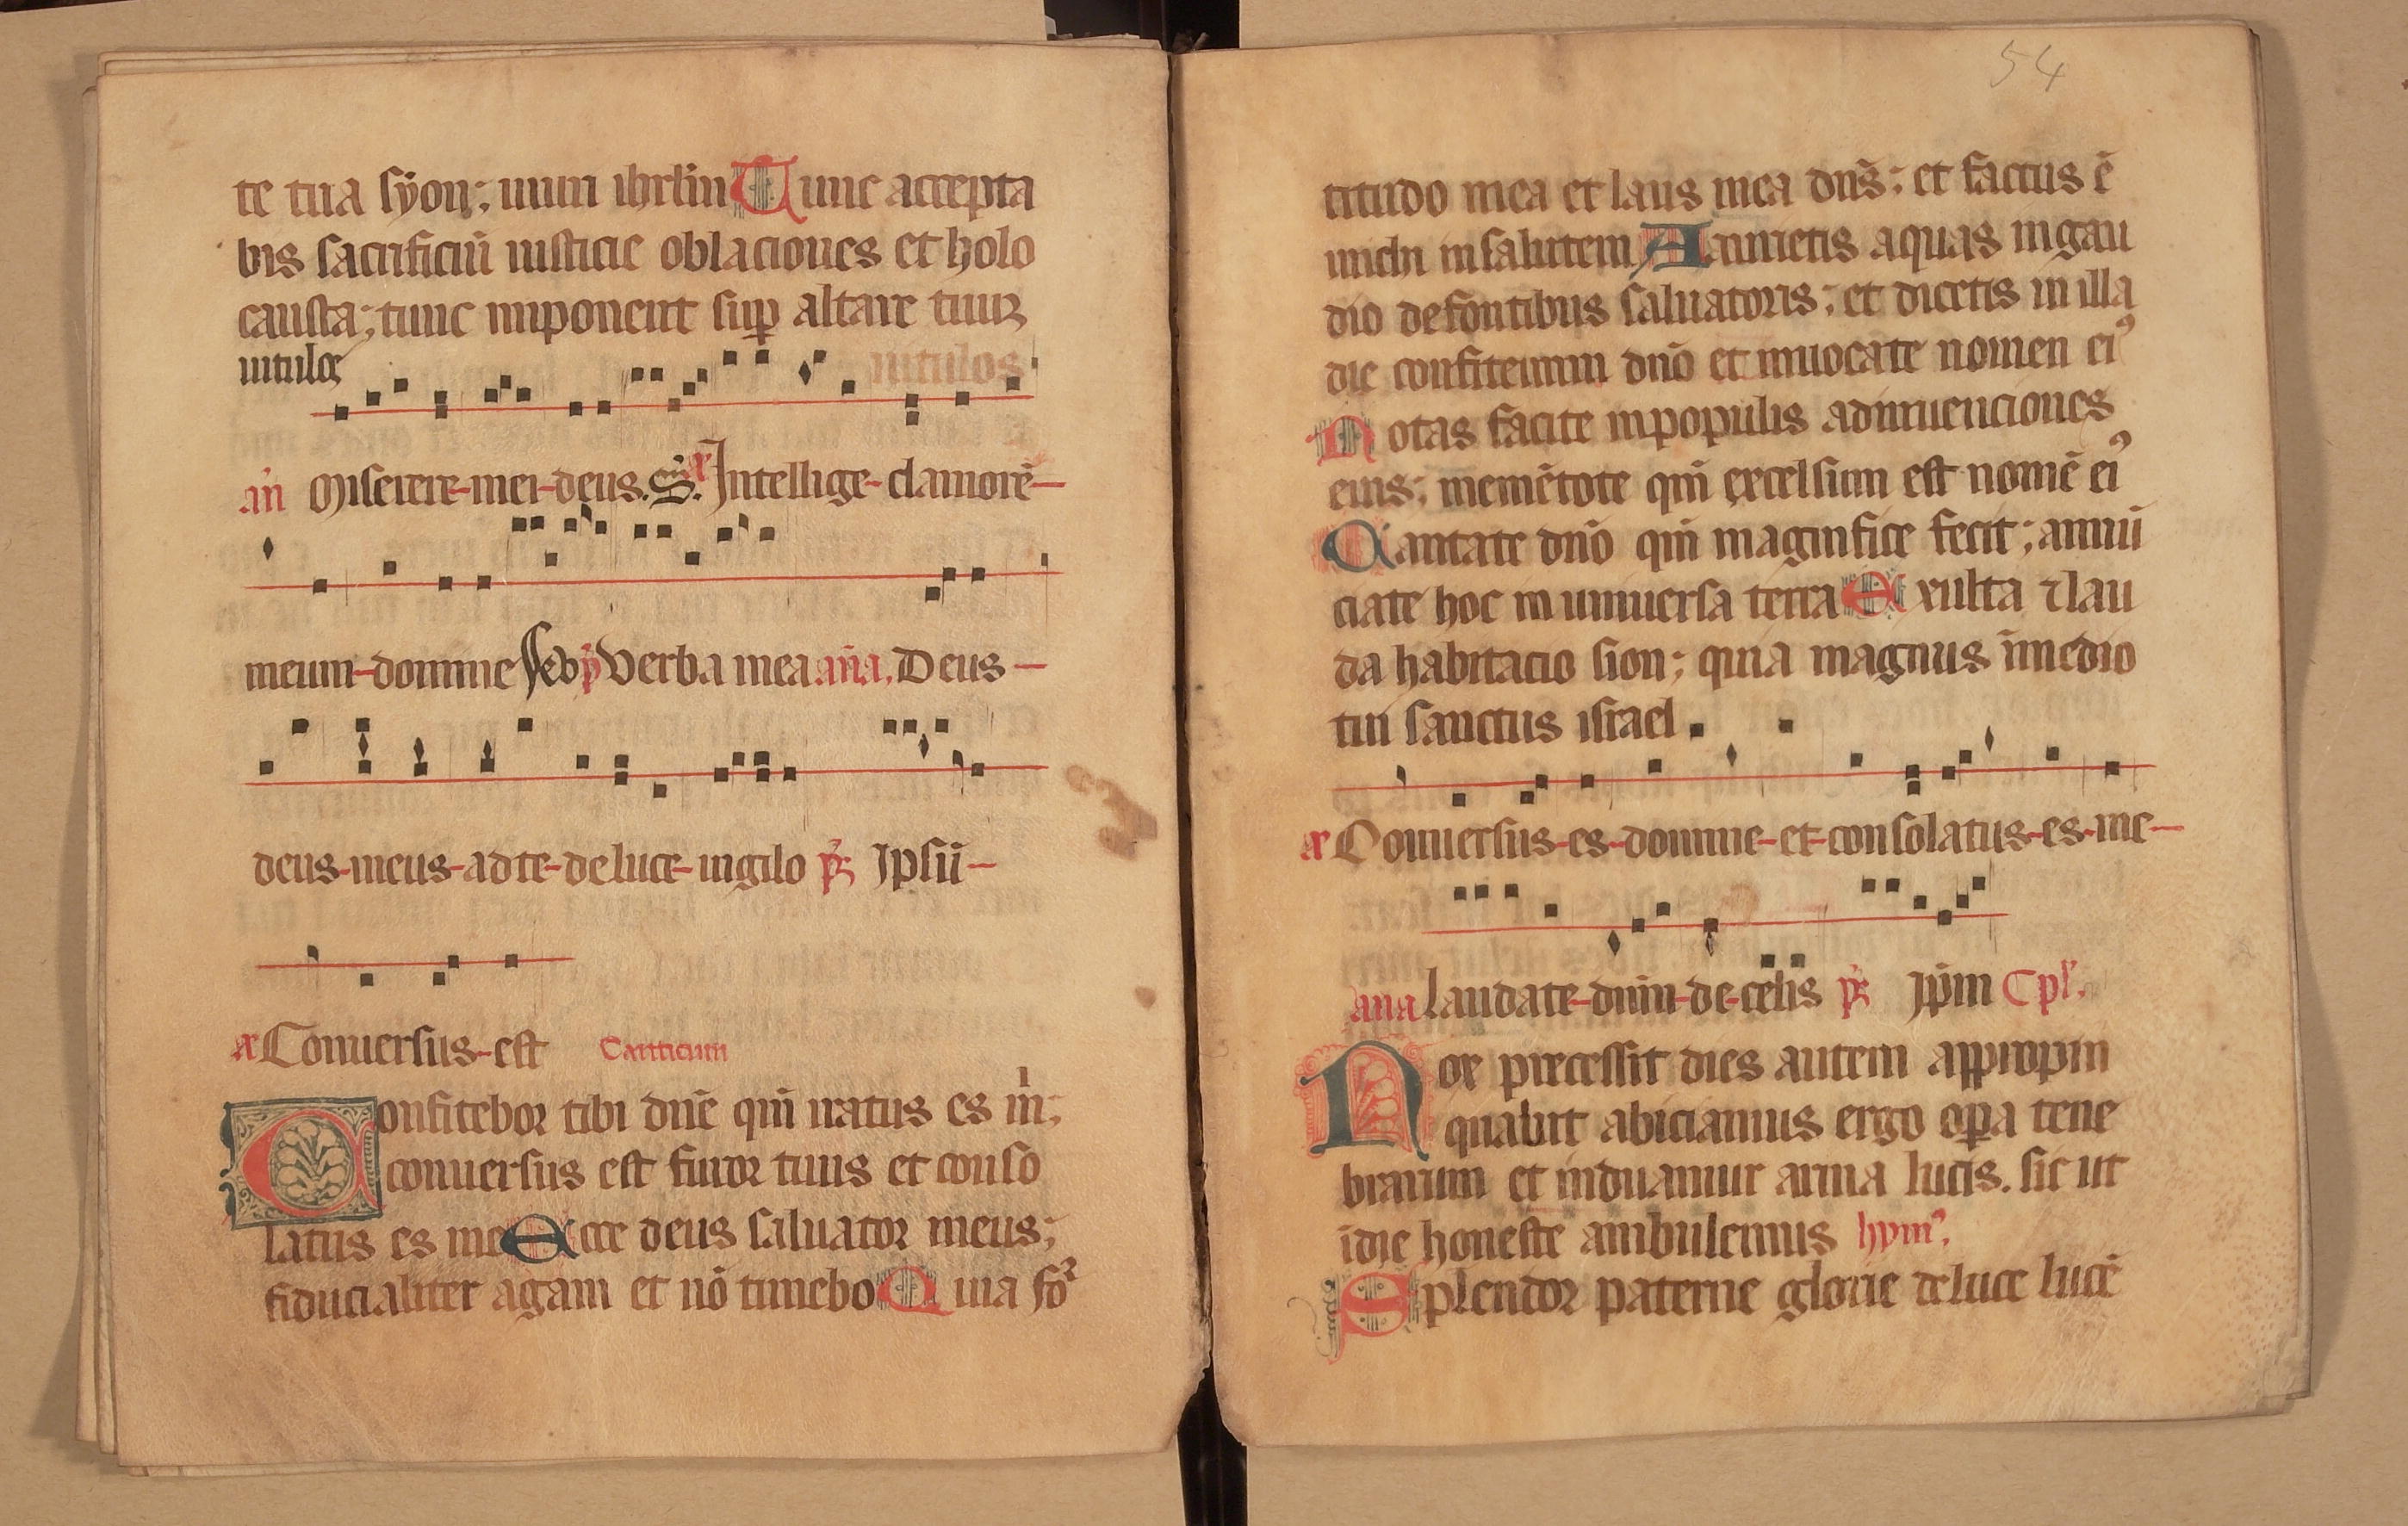 te tua syon; muri ihrlm Tunc accepta
bis sacrificiū iusticie oblaciones et holo
causta; tunc imponent sup altare tuuꝫ
uitulos
uitulos
an̄ Miserere-mei-deus. S. Intellige-clamorē-
meum-domine Verba mea ana. Deus-
deus-meus-ad te-de luce-uigilo ps Ipsū-
a Conuersus-est Canticum
Confitebor tibi dn̄e qm̄ iratus es m̄;
conuersus est furor tuus et conso
latus es me Ecce deus saluator meus;
fiducialiter agam et nō timebo Quia fo
54
titudo mea et laus mea dn̄s; et factus ē
michi in salutem A aurietis aquas in gau
dio de fontibus saluatoris; et dicetis in illa
die confitemini dn̄o et inuocate nomen eiꝰ
Notas facite in populis adinuenciones
eius; memētote qm̄ excelsum est nomē eiꝰ
Cantate dn̄o qm̄ magnifice fecit; annū
ciate hoc in uniuersa terra Exulta ⁊ lau
da habitacio sion; quia magnus īmedio
tui sanctus israel.
a Conuersus-es-domine-et-consolatus-es-me-
ana Laudate-dnm̄-de-celis ps Ip̄m Cpl.
Nox precessit dies autem appropin
quabit abiciamus ergo opa tene
brarum et induamur arma lucis. sic ut
īdie honeste ambulemus hymꝰ.
Splendor paterne glorie de luce lucē